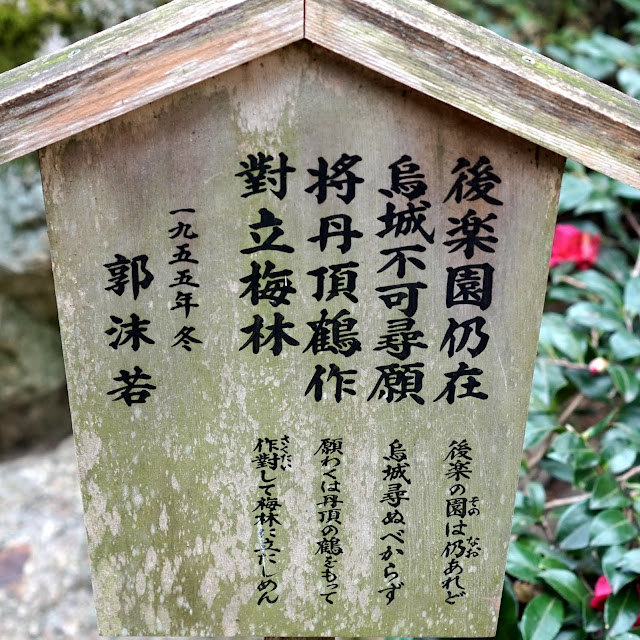 後楽園仍在
烏城不可尋願
将丹頂鶴作
對立梅林
一九五五年冬
郭沫若
後楽の園は仍あれど
その
なお
烏城尋ぬべからず
願わくは丹頂の鶴をもって
作對して梅林に立たしめん